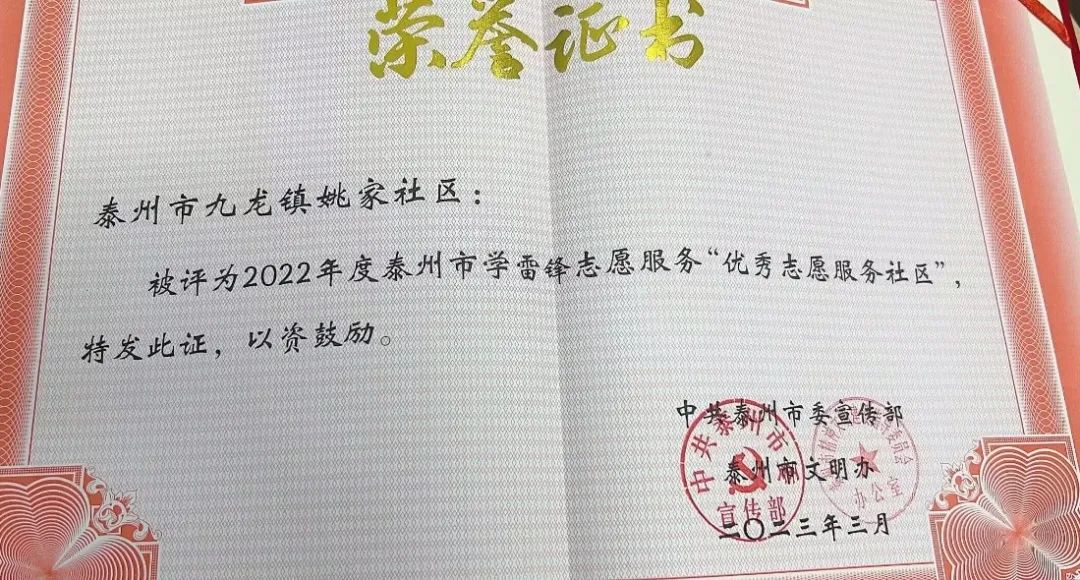 荣誉证书
泰州市九龙镇姚家社区：
被评为2022年度泰州市学雷锋志愿服务“优秀志愿服务社区”，
特发此证，以资鼓励。
中共泰州市委宣传部
泰州市文明办
二〇二三年三月
中共泰州市
宣传部
委员会
办公室